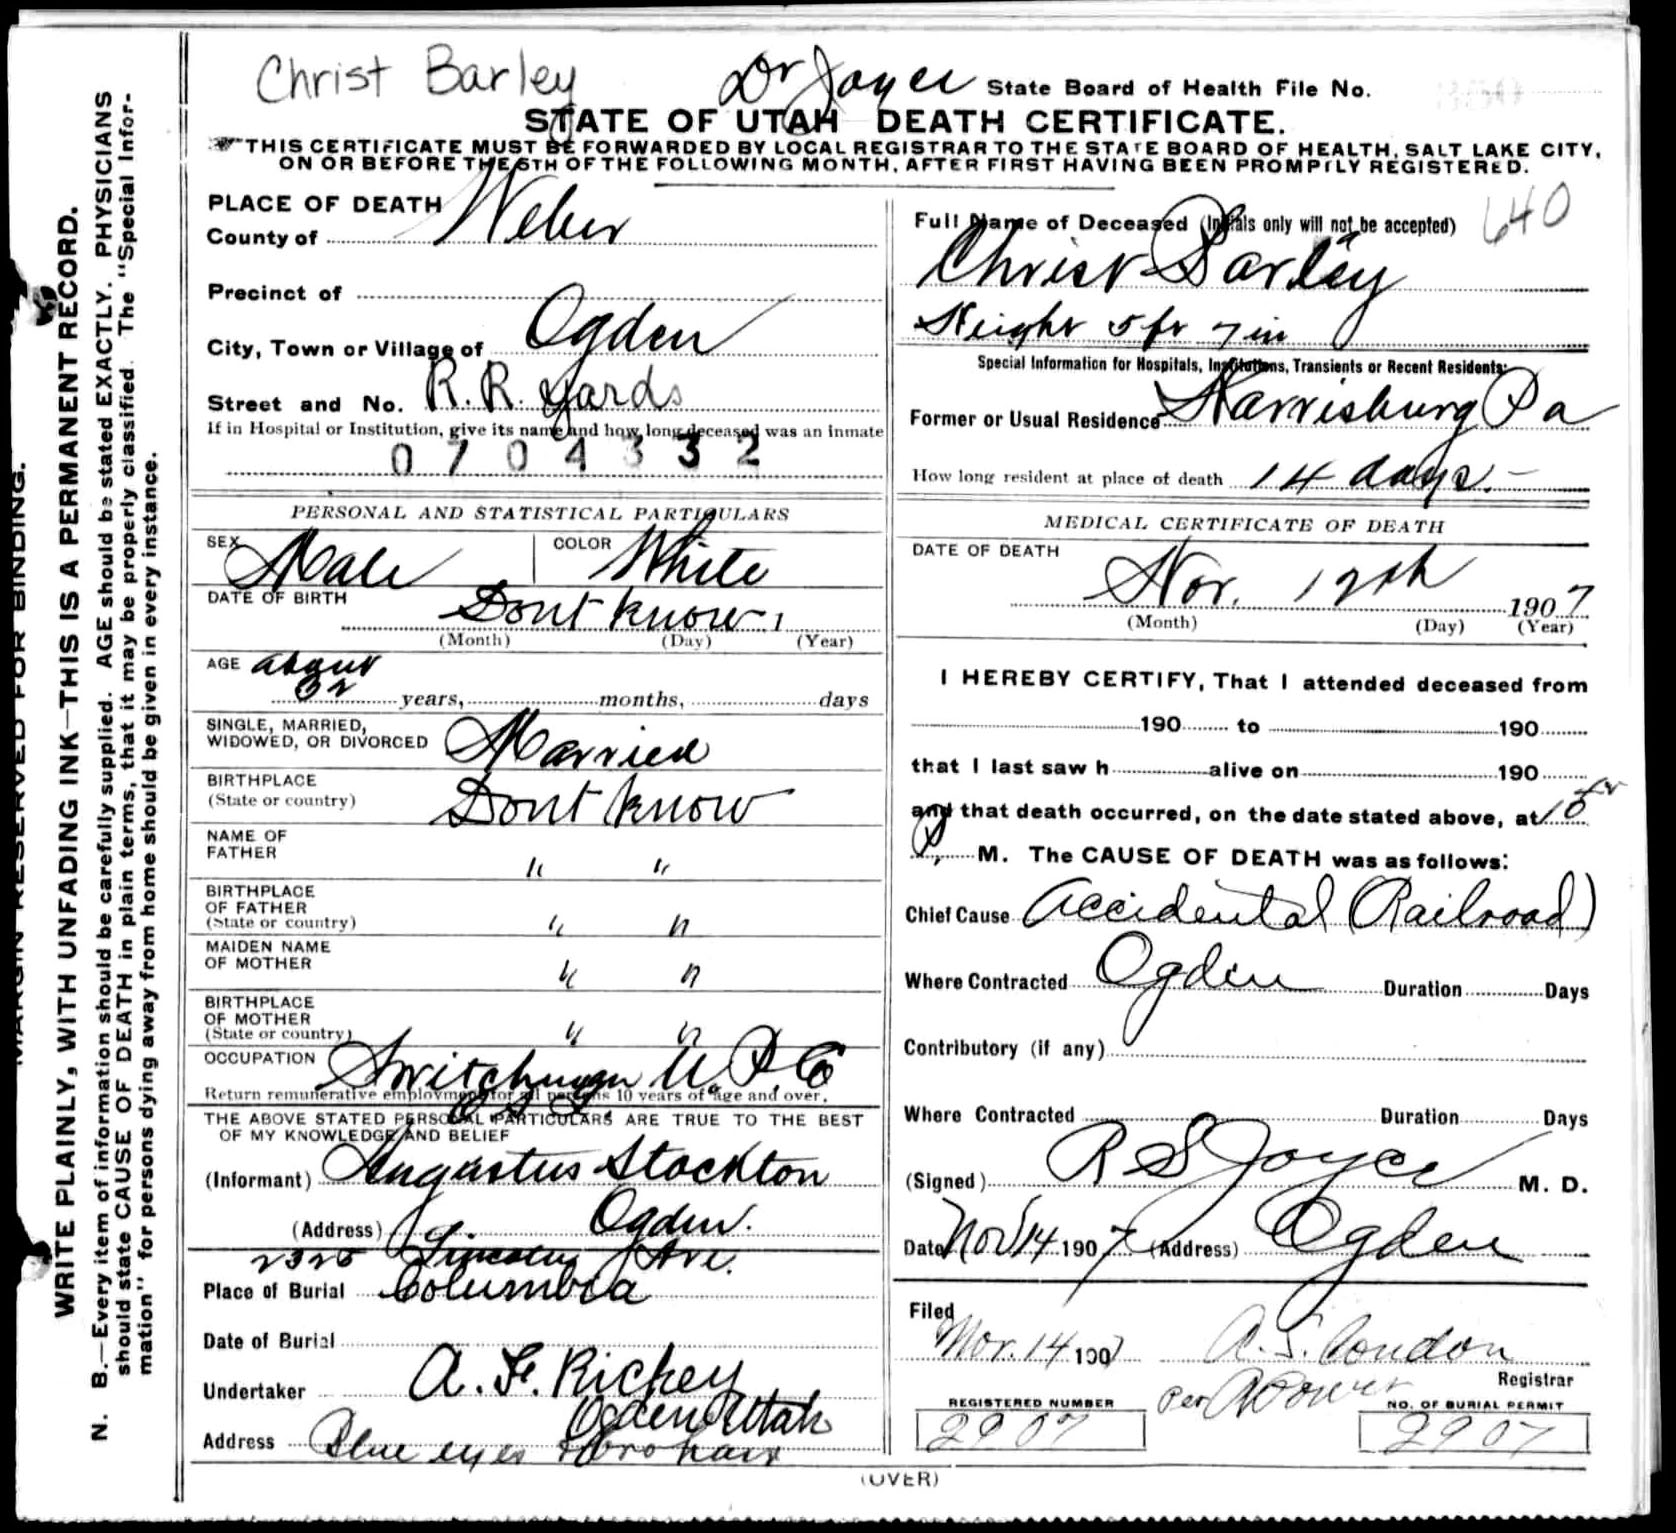 Christ Barley
Dr Joyce State Board of Health File No.
STATE OF UTAH DEATH CERTIFICATE.
THIS CERTIFICATE MUST BE FORWARDED BY LOCAL REGISTRAR TO THE STATE BOARD OF HEALTH, SALT LAKE CITY,
ON OR BEFORE THE 5TH OF THE FOLLOWING MONTH, AFTER FIRST HAVING BEEN PROMPTLY REGISTERED.
MARGIN RESERVED FOR BINDING.
WRITE PLAINLY, WITH UNFADING INK—THIS IS A PERMANENT RECORD.
N. B.—Every item of information should be carefully supplied. AGE should be stated EXACTLY. PHYSICIANS
should state CAUSE OF DEATH in plain terms, that it may be properly classified. The "Special Infor-
mation" for persons dying away from home should be given in every instance.
PLACE OF DEATH
County of Weber
Precinct of
City, Town or Village of Ogden
Street and No. R.R. Yards
If in Hospital or Institution, give its name and how long deceased was an inmate
0704332
PERSONAL AND STATISTICAL PARTICULARS
SEX Male COLOR White
DATE OF BIRTH Dont know 1
(Month) (Day) (Year)
AGE about
32 years, months, days
SINGLE, MARRIED,
WIDOWED, OR DIVORCED Married
BIRTHPLACE
(State or country) Dont know
NAME OF
FATHER " "
BIRTHPLACE
OF FATHER
(State or country) " "
MAIDEN NAME
OF MOTHER " "
BIRTHPLACE
OF MOTHER
(State or country) " "
OCCUPATION Switchman U.P. Co
Return remunerative employment for all persons 10 years of age and over.
THE ABOVE STATED PERSONAL PARTICULARS ARE TRUE TO THE BEST
OF MY KNOWLEDGE AND BELIEF
(Informant) Augustus Stockton
(Address) Ogden.
2325 Lincoln Ave.
Place of Burial Columbia
Date of Burial
Undertaker A. F. Rickey
Ogden Utah
Address Blue eyes Bro hair
Full Name of Deceased (Initials only will not be accepted) 640
Christ Barley
Height 5 ft 7 in
Special Information for Hospitals, Institutions, Transients or Recent Residents:
Former or Usual Residence Harrisburg Pa
How long resident at place of death 14 days.
MEDICAL CERTIFICATE OF DEATH
DATE OF DEATH
Nov. 12th 1907
(Month) (Day) (Year)
I HEREBY CERTIFY, That I attended deceased from
190 to 190
that I last saw h alive on 190
and that death occurred, on the date stated above, at
P. M. The CAUSE OF DEATH was as follows:
Chief Cause Accidental (Railroad)
Where Contracted Ogden Duration Days
Contributory (if any)
Where Contracted Duration Days
(Signed) R S Joyce M. D.
Date Nov 14 1907 (Address) Ogden
Filed
Nov. 14 1907 A. S. Condon
Registrar
per
REGISTERED NUMBER NO. OF BURIAL PERMIT
2907 2907
(OVER)